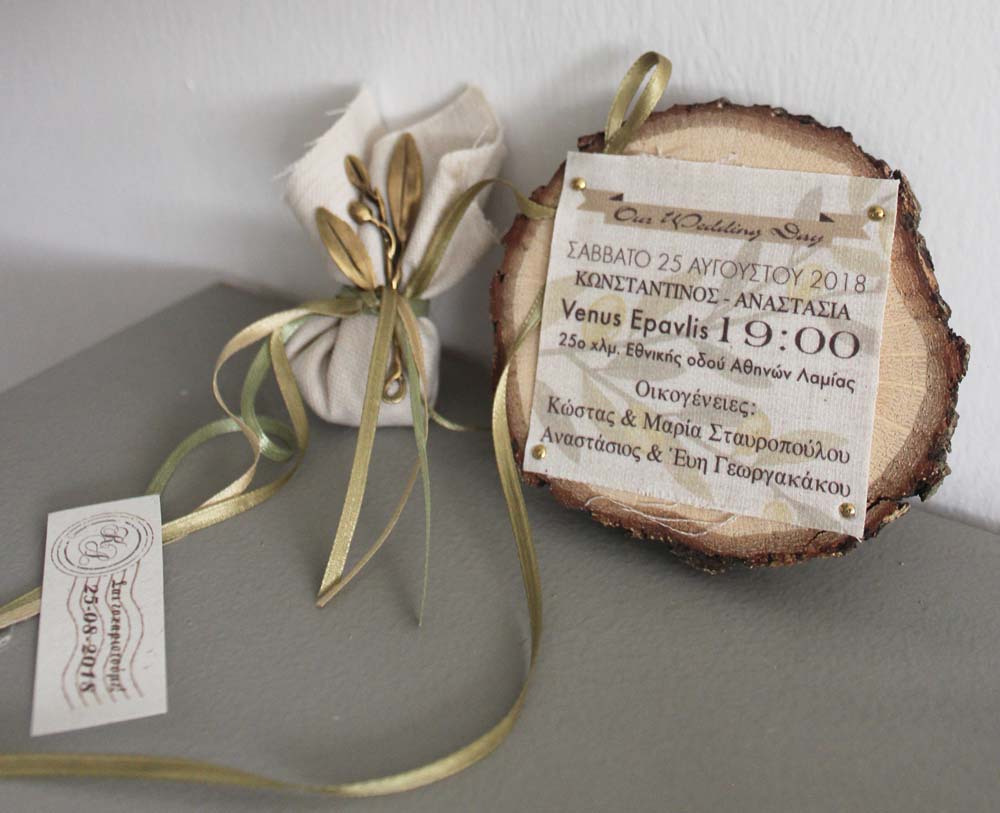 Our Wedding Day
ΣΑΒΒΑΤΟ 25 ΑΥΓΟΥΣΤΟΥ 2018
ΚΩΝΣΤΑΝΤΙΝΟΣ - ΑΝΑΣΤΑΣΙΑ
Venus Epavlis 19:00
25ο χλμ. Εθνικής οδού Αθηνών Λαμίας
Οικογένειες:
Κώστας & Μαρία Σταυροπούλου
Αναστάσιος & Έυη Γεωργακάκου
25-08-2018